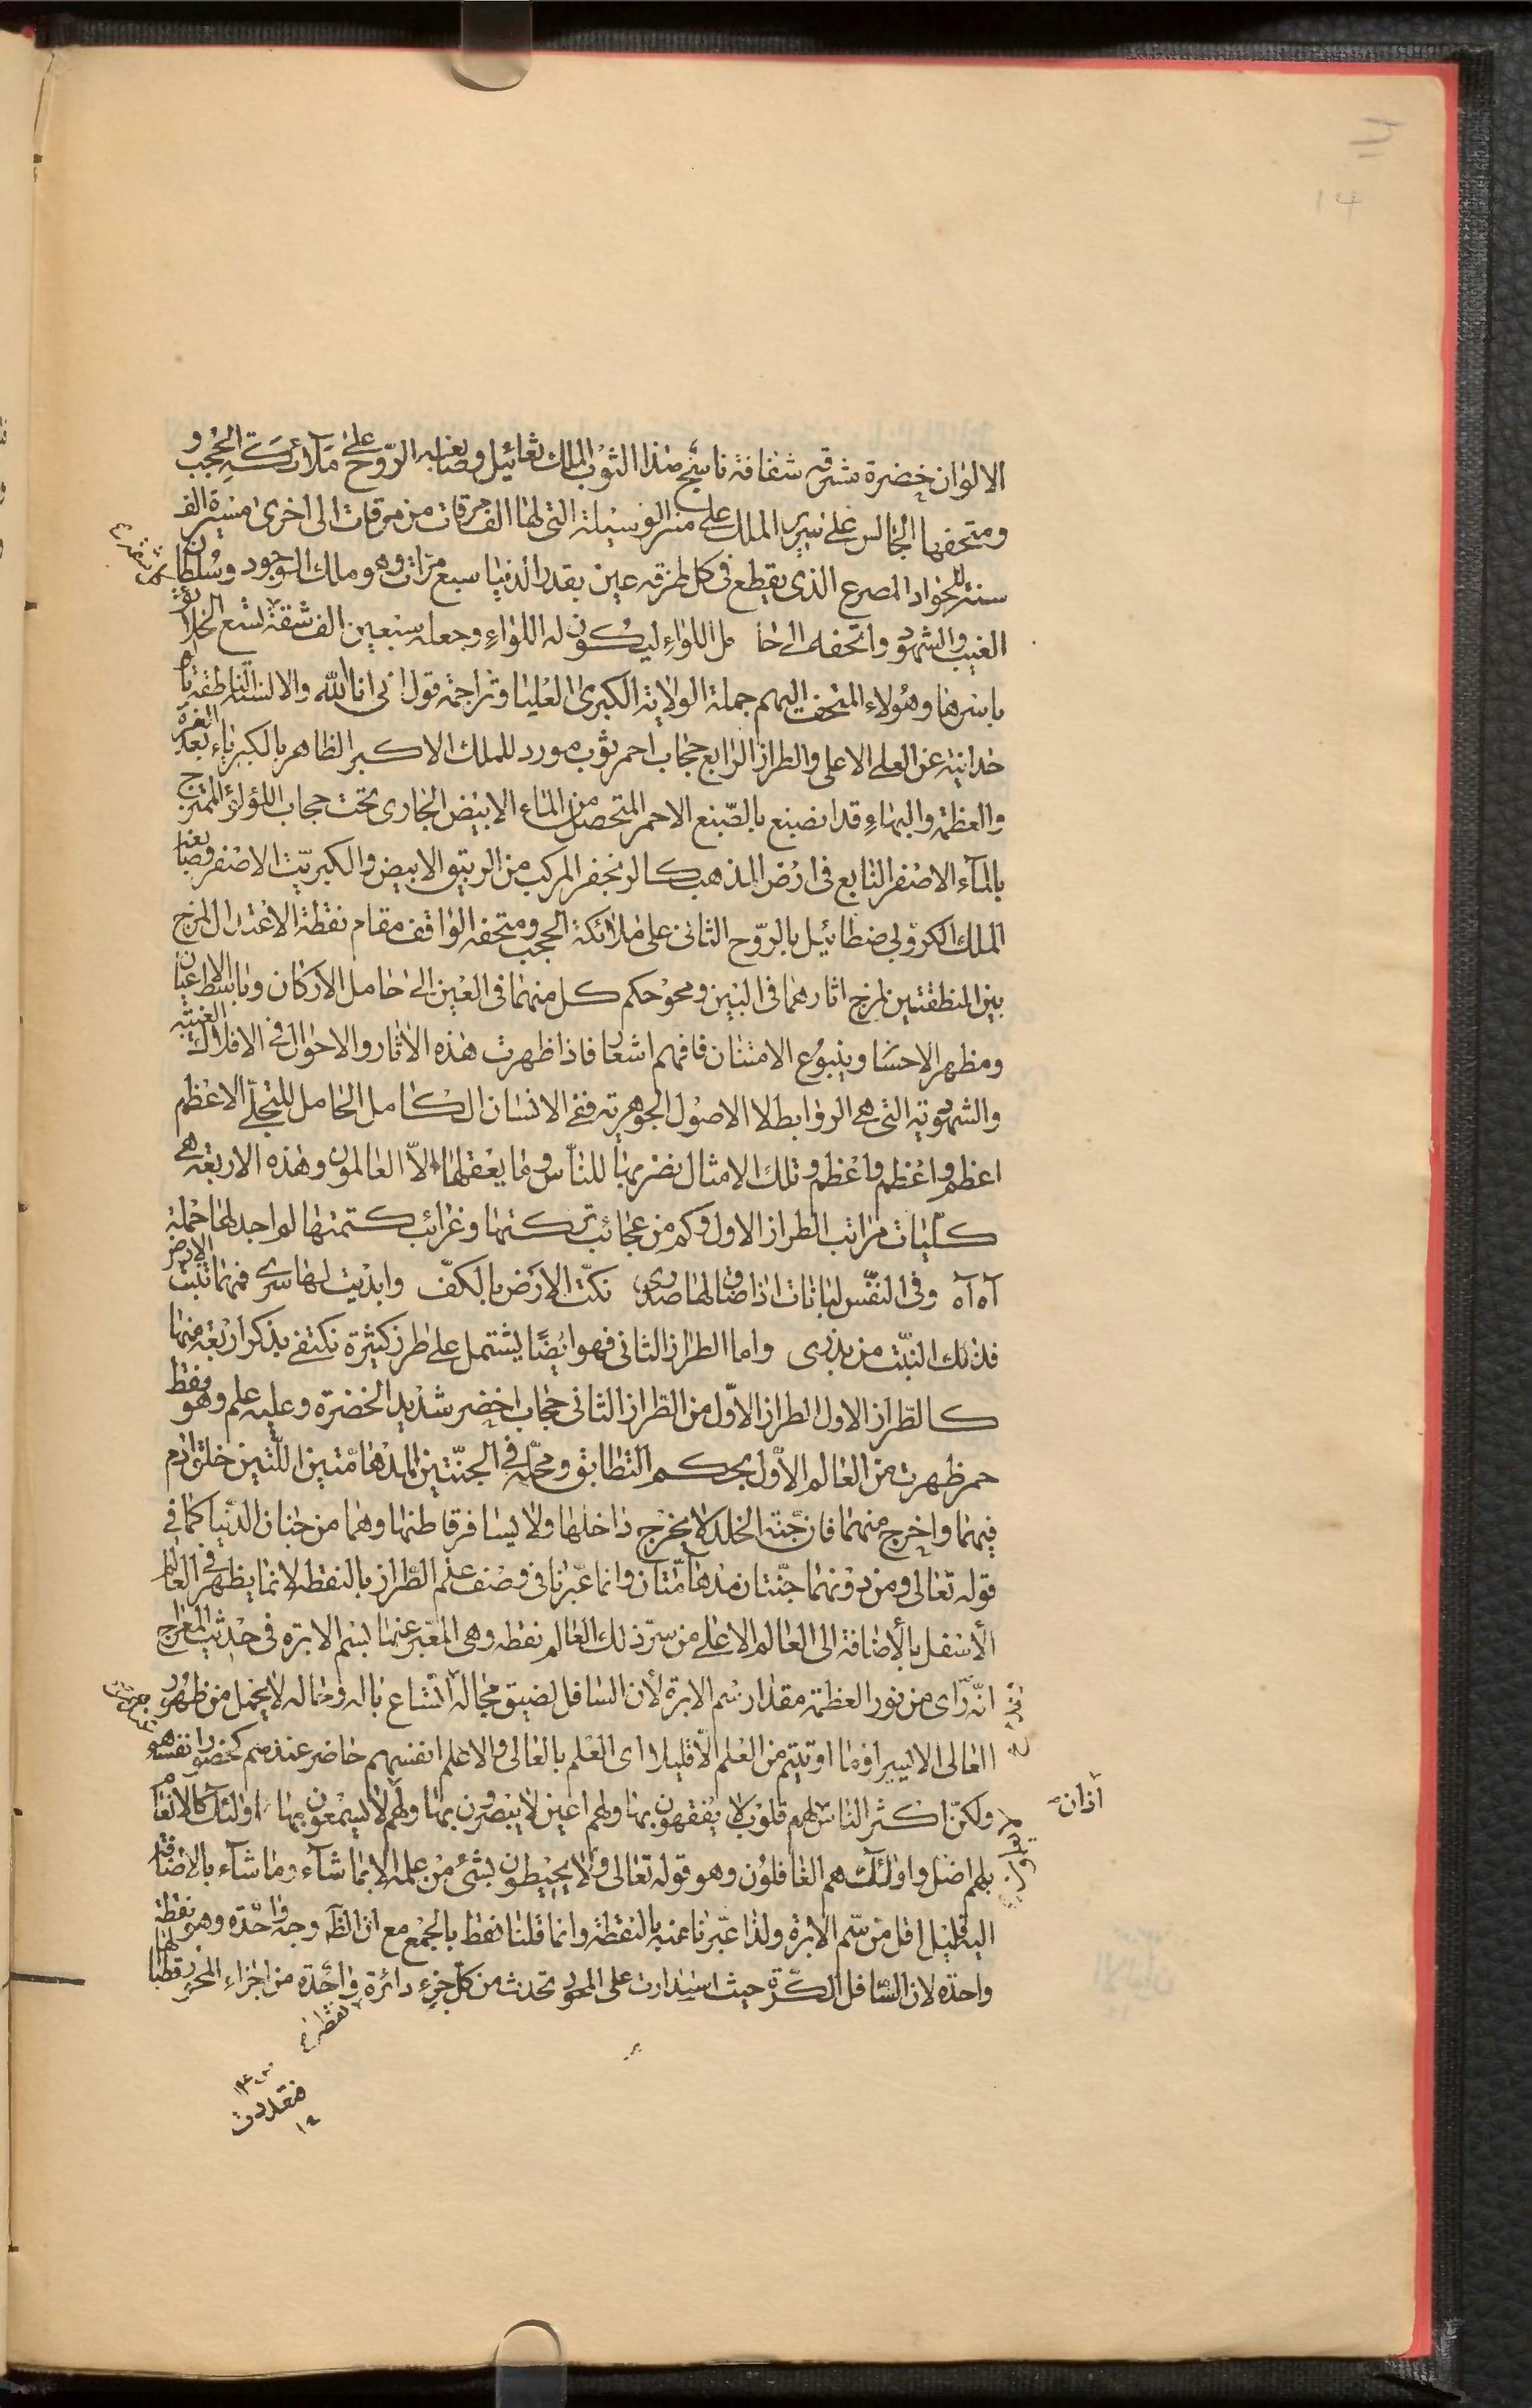 14
الالوان خضرة مشرقه شفافة ناسج هذا الثوب الملك ثغائيل وصابغه الروح على ملآئكة الحجب و
ومتحفها الجالس على سرير الملك على منبر الوسيلة التى لها الف مرقات من مرقات الى اخرى مسيرة الف
سنة للجواد المسرع الذى يقطع فى كل طرفه عين بقدر الدنيا سبع مرات وهو مالك الوجود وسلطان
الغيب والشهود واتحفه الى حامل اللواء ليكون له اللواء وجعله سبعين الف شقة لتسع الخلايق
باسرها وهؤلاء المتحف اليهم حملة الولاية الكبرى العليا وتراجمة قول انى انا الله والالسن الناطقة بالو
حدانية عن العلى الاعلى والطراز الرابع حجاب احمر ثوب مورد للملك الاكبر الظاهر بالكبرياء بعد العزة
والعظمة والبهاء قد انصبغ بالصبغ الاحمر المتحصل من الماء الابيض الجارى تحت حجاب اللؤلؤ الممتزج
بالمآء الاصفر النابع فى ارض الذهب كالزنجفر المركب من الزيبق الابيض والكبريت الاصفر وصابغه
الملك الكروبى صطائيل بالروح الثانى على ملائكة الحجب ومتحفه الواقف مقام نقطة الاعتدال المزج
بين المنطقتين لمزج اثارهما فى البين ومحو حكم كل منهما فى العين الى حامل الاركان وباسط الاعيان
ومظهر الاحسان وينبوع الامتنان فافهم اشعار فاذا ظهرت هذه الاثار والاحوال فى الافلاك الغيبيه
والشهوديه التى هى الروابط لا الاصول الجوهرية ففى الانسان الكامل الحامل للتجلى الاعظم
اعظم واعظم واعظم وتلك الامثال نضربها للناس وما يعقلها الا العالمون وهذه الاربعة هى
كليات مراتب الطراز الاول وكم من عجائب تركتها وغرائب كتمتها لم اجد لها حملة
آه آه وفى النفس لبانات اذا ضاق لها صدرى نكت الارض بالكف وابديت لها سرى فمهما تنبت الارض
فذلك النبت من بذرى واما الطراز الثانى فهو ايضا يشتمل على طرز كثيرة نكتفى بذكر اربعة منها
كالطراز الاول الطراز الاول من الطراز الثانى حجاب اخضر شديد الخضرة وعليه علم وهو نقط
حمر ظهرت من العالم الاول بحكم التطابق ومحله فى الجنتين المدهامتين اللتين خلق ادم
فيهما واخرج منهما فان جنة الخلد لا يخرج داخلها ولا يسافر قاطنها وهما من جنان الدنيا كما فى
قوله تعالى ومن دونهما جنتان مدهامتان وانما عبرنا فى وصف علم الطراز بالنقطه لانما يظهر فى العالم
الاسفل بالاضافة الى العالم الاعلى من سر ذلك العالم نقطه وهى المعبر عنها بسم الابرة فى حديث المعراج
انه رأى من نور العظمة مقدار سم الابرة لأن السافل لضيق مجاله اتساع باله وحماله لا يحتمل من ظهور
العالى الا اليسير وما اوتيتم من العلم الا قليلا اى العلم بالعالى والا علم انفسهم حاضر عندهم كحضور انفسهم
ولكن اكثر الناس لهم قلوب لا يفقهون بها ولهم اعين لا يبصرون بها ولهم لا يسمعون بها اولئك كالانعام
آذان
بل هم اضل واولئك هم الغافلون وهو قوله تعالى ولا يحيطون بشئ من علمه الا بما شآء وما شآء بالاضافة
اليه قليل اقل من سم الابرة ولذا عبرنا عنه بالنقطة وانما قلنا نقط بالجمع مع ان الظ وجه واحده وهو نقطة
واحدة لان السافل الكرة حيث استدارت على المحور تحدث من كل جزء دائرة واحدة من اجزاء المحور قطبا لها